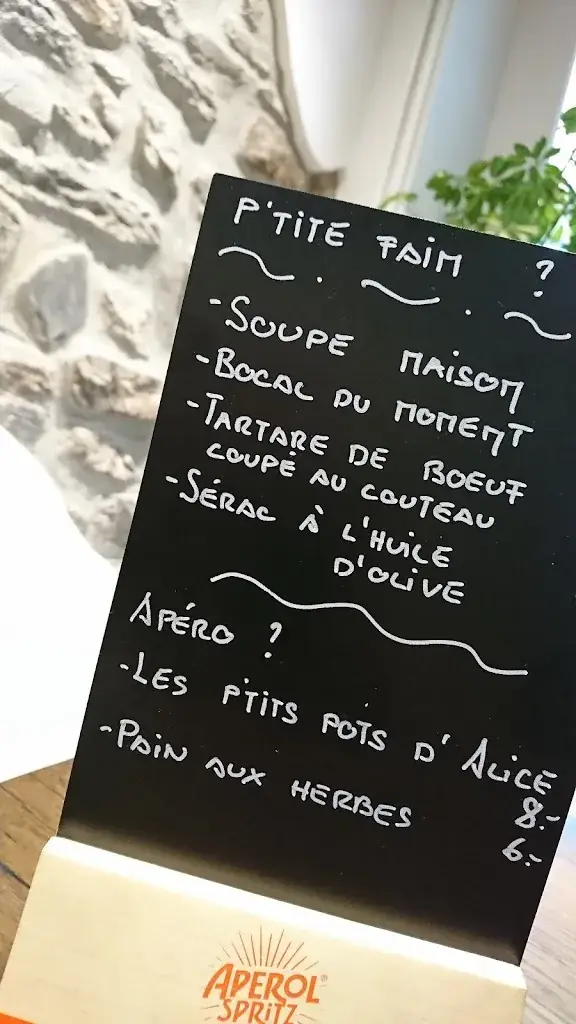 P'TITE FAIM ?
-SOUPE MAISON
-BOCAL DU MOMENT
-TARTARE DE BOEUF
COUPÉ AU COUTEAU
-SÉRAC À L'HUILE
D'OLIVE
APÉRO ?
-LES PTITS POTS D'ALICE
8.-
-PAIN AUX HERBES
6.-
APEROL®
SPRITZ